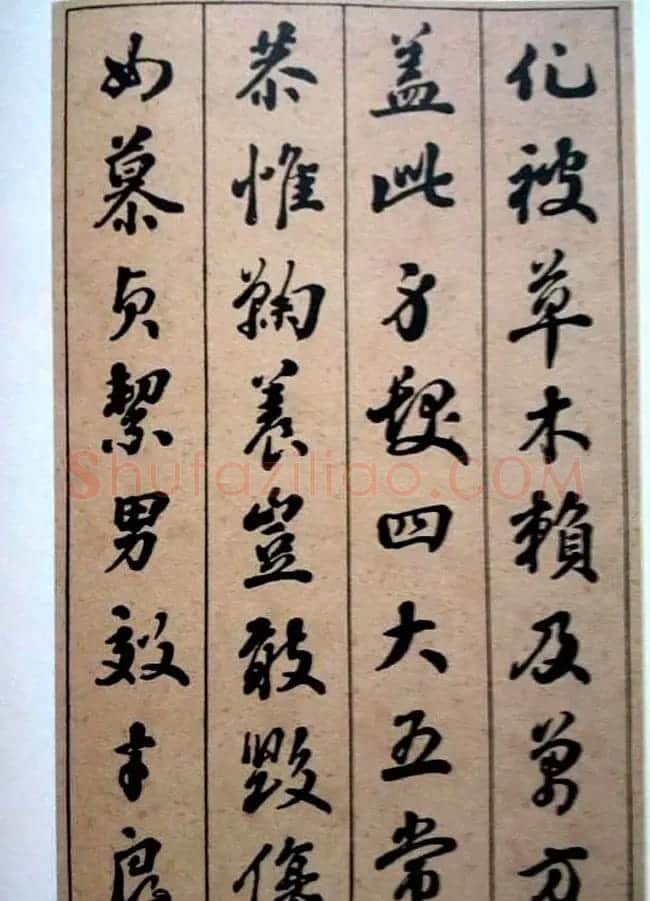 化被草木賴及萬方
盖此身髮四大五常
恭惟鞠養豈敢毀傷
女慕貞絜男效才良
Shufaziliao.COM